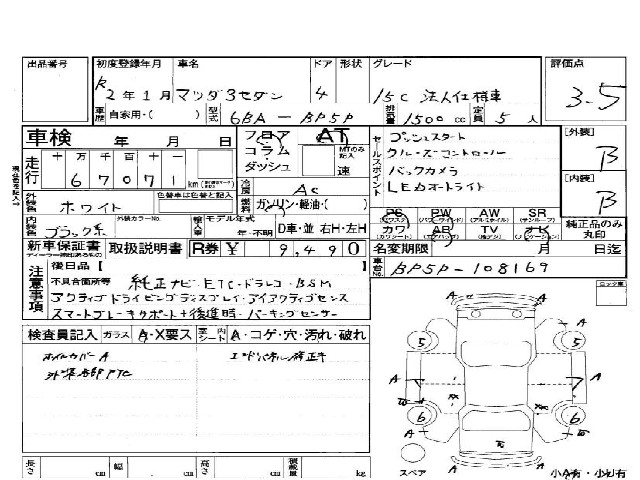 出品番号 初度登録年月 車名 ドア 形状 グレード 評価点
R2年1月 マツダ3セダン 4 15C 法人仕様車 3.5
車歴 自家用・( ) 型式 6BA-BP5P 排気量 1500 cc 定員 5 人
車検 年 月 日 フロア コラム ダッシュ AT MTのみ記入 速
走行 十 万 千 百 十 一
6 7 0 7 1 km
セールスポイント
プッシュスタート
クルーズコントロール
バックカメラ
LEDオートライト
[外装] B
[内装] B
冷房 AC
外装色名 ホワイト 色替車は色替と記入 燃料 ガソリン・軽油・( )
内装色名 ブラック系 外装カラーNo. 輸入車 モデル年式 年・不明 D車・並 右H・左H
PS PW AW SR
(パワステ) (パワーウインド) (アルミホイル) (サンルーフ)
カワ AB TV ナビ
(カワシート) (エアバッグ) (ナビゲーション)
純正品のみ丸印
新車保証書 取扱説明書 R券 ¥ 9,490 名変期限 月 日迄
車台No. BP5P-108169
注意事項
後日品【 】
不具合箇所等 純正ナビ・ETC・ドラレコ・BSM
アクティブドライビングディスプレイ・アイアクティブセンス
スマートブレーキサポート+後進時・パーキングセンサー
検査員記入 ガラス A・X要ス 室内シート A・コゲ・穴・汚れ・破れ
ホイルカバーA エンドパネル修正キ
5 5
A A
6 6
A A
A A
スペア
小A有・小U有
長さ cm 幅 cm 高さ cm 積載量 kg